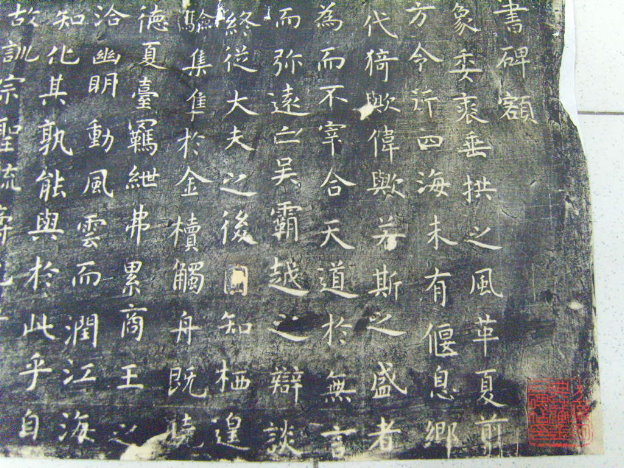 書碑額
象委裘垂拱之風革夏前
方令行四海未有偃息鄉
代猗歟偉歟若斯之盛者
為而不宰合天道於無言
而弥遠亡吳霸越之辯談
終從大夫之後固知栖遑
驗集隼於金櫝觸舟既曉
德夏臺羈紲弗累商王之
洽幽明動風雲而潤江海
知化其孰能與於此乎自
故訓宗聖疏